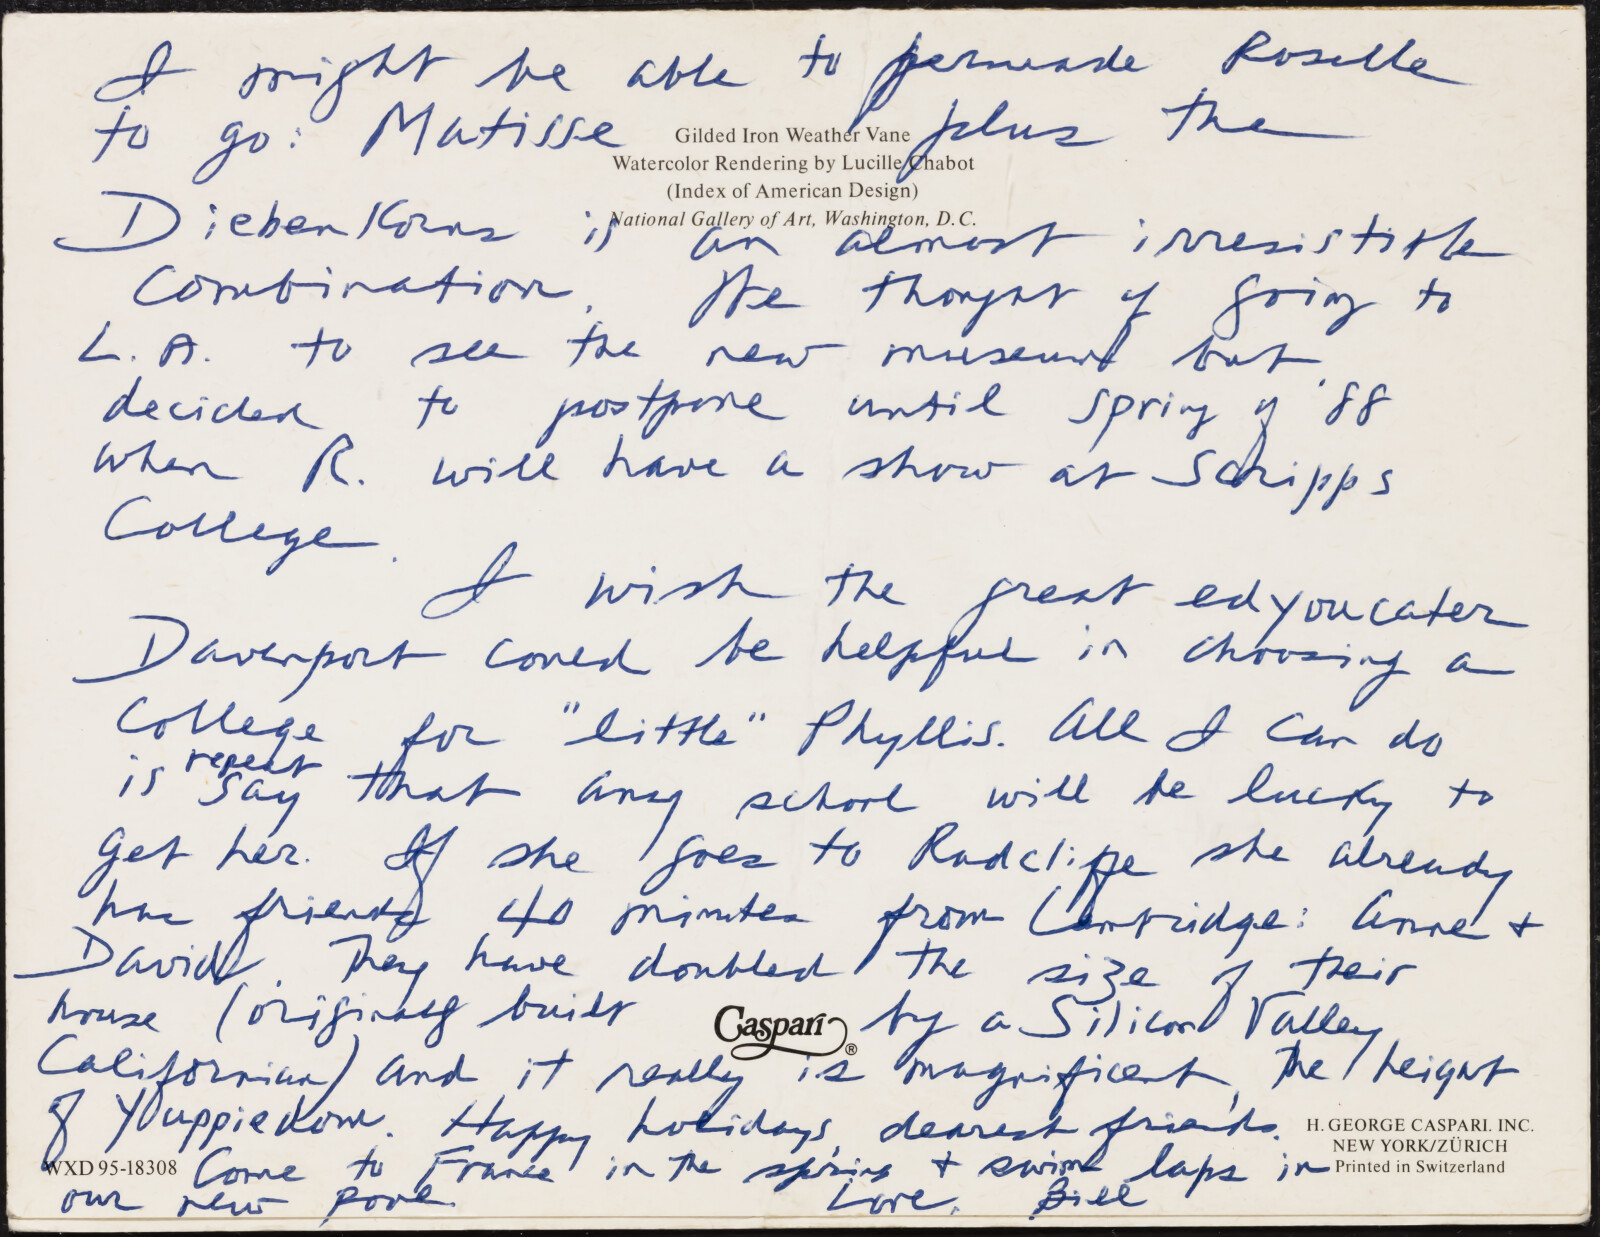 I might be able to persuade Roselle
to go: Matisse plus the
Gilded Iron Weather Vane
Watercolor Rendering by Lucille Chabot
(Index of American Design)
National Gallery of Art, Washington, D.C.
Diebenkorns is an almost irresistible
combination. We thought of going to
L.A. to see the new museum but
decided to postpone until spring of '88
when R. will have a show at Scripps
College.
I wish the great edyoucater
Davenport could be helpful in choosing a
college for "little" Phyllis. All I can do
is repeat say that any school will be lucky to
get her. If she goes to Radcliffe she already
has friends 40 minutes from Cambridge: Anne +
David. They have doubled the size of their
house (originally built by a Silicon Valley
Caspari ®
Californian) and it really is magnificent, the height
of Youppiedom. Happy holidays, dearest friends.
H. GEORGE CASPARI. INC.
NEW YORK/ZÜRICH
Printed in Switzerland
WXD 95-18308
Come to France in the spring + swim laps in
our new pool.
Love, Bill